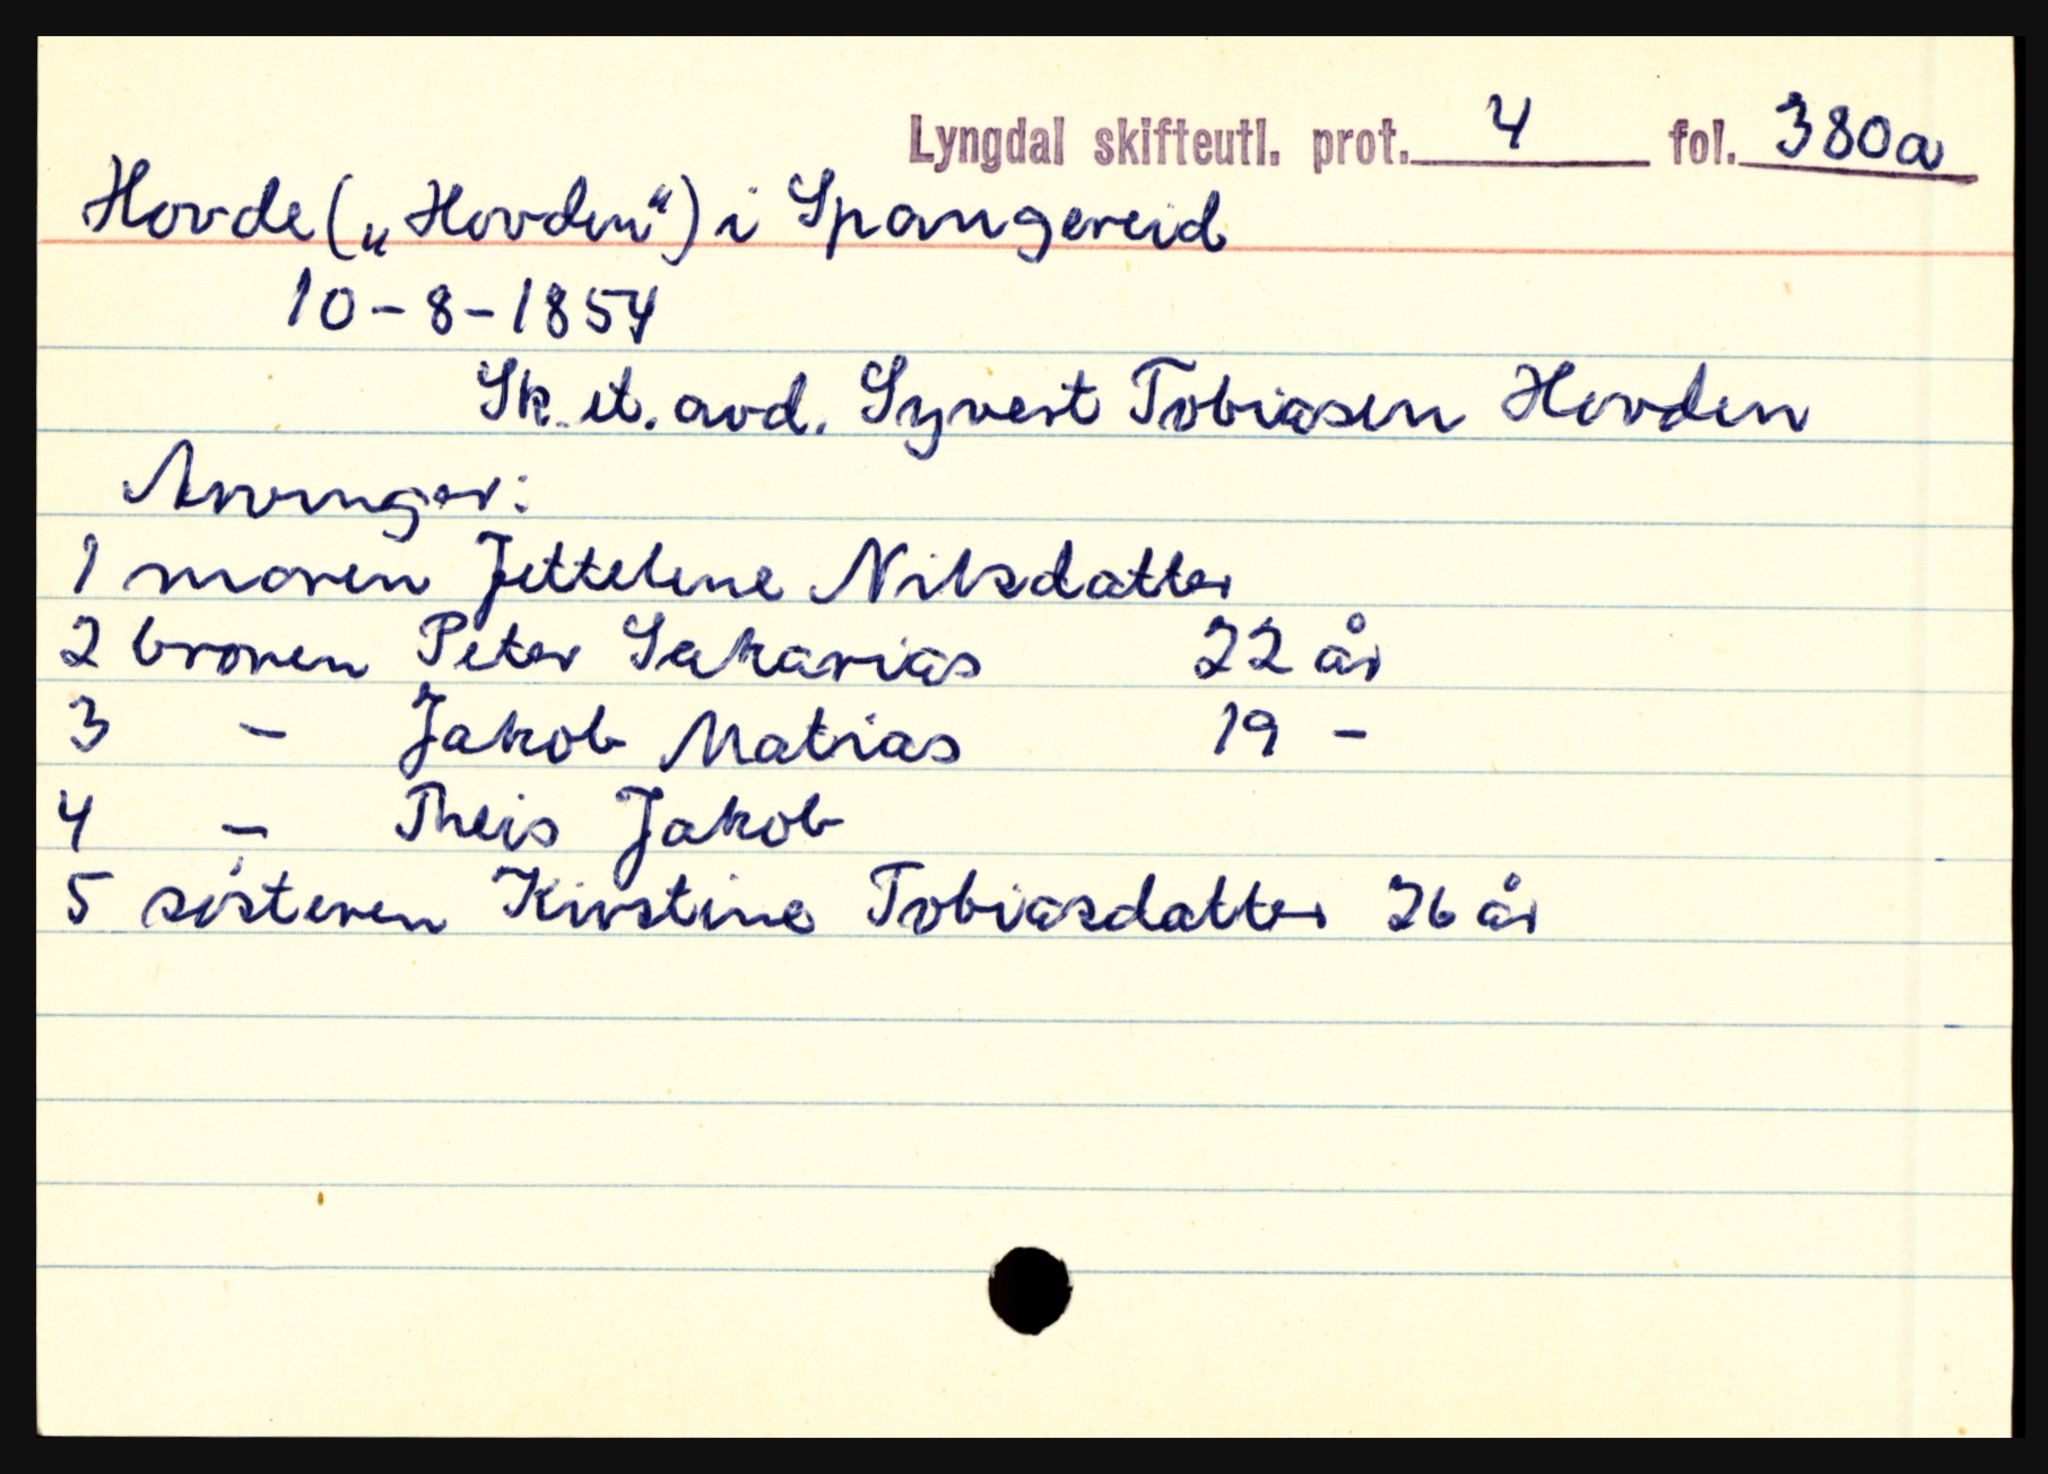 Lyngdal skifteutl. prot. 4 fol. 380a
Hovde („Hovden“) i Spangereid
10-8-1854
Sk. et. avd. Syvert Tobiasen Hovden
Arvinger:
1 moren Jettelene Nilsdatter
2 broren Peter Sakarias 22 år
3 - Jakob Matias 19 -
4 - Theis Jakob
5 søsteren Kirstine Tobiasdatter 26 år